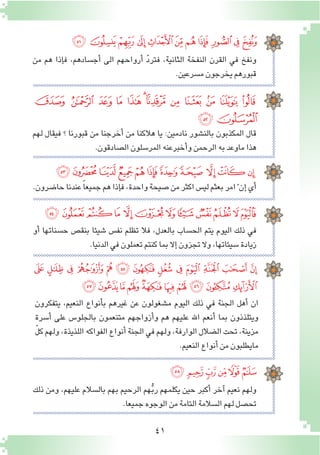 وَنُفِخَ فِي الصُّورِ فَإِذَا هُم مِّنَ الْأَجْدَاثِ إِلَىٰ رَبِّهِمْ يَنسِلُونَ ٥١
ونفخ في القرن النفخة الثانية، فتردّ أرواحهم الى أجسادهم، فإذا هم من
قبورهم يخرجون مسرعين.
قَالُوا يَا وَيْلَنَا مَن بَعَثَنَا مِن مَّرْقَدِنَا هَٰذَا مَا وَعَدَ الرَّحْمَٰنُ وَصَدَقَ
الْمُرْسَلُونَ ٥٢
قال المكذبون بالنشور نادمين: يا هلاكنا من أخرجنا من قبورنا ؟ فيقال لهم
هذا ماوعد به الرحمن وأخبرعنه المرسلون الصادقون.
إِن كَانَتْ إِلَّا صَيْحَةً وَاحِدَةً فَإِذَا هُمْ جَمِيعٌ لَّدَيْنَا مُحْضَرُونَ ٥٣
أي إن ّ امر بعثهم ليس اكثر من صيحة واحدة، فإذا هم جميعاً عندنا حاضرون.
فَالْيَوْمَ لَا تُظْلَمُ نَفْسٌ شَيْئًا وَلَا تُجْزَوْنَ إِلَّا مَا كُنتُمْ تَعْمَلُونَ ٥٤
في ذلك اليوم يتم الحساب بالعدل، فلا تظلم نفس شيئا بنقص حسناتها أو
زيادة سيئاتها، ولا تجزون إلا بما كنتم تعملون في الدنيا.
إِنَّ أَصْحَابَ الْجَنَّةِ الْيَوْمَ فِي شُغُلٍ فَاكِهُونَ ٥٥ هُمْ وَأَزْوَاجُهُمْ فِي ظِلَالٍ عَلَى
الْأَرَائِكِ مُتَّكِئُونَ ٥٦ لَهُمْ فِيهَا فَاكِهَةٌ وَلَهُم مَّا يَدَّعُونَ ٥٧
ان أهل الجنة في ذلك اليوم مشغولون عن غيرهم بأنواع النعيم، يتفكرون
ويتلذذون بما أنعم الله عليهم هم وأزواجهم متنعمون بالجلوس على أسرة
مزينة، تحت الضلال الوارفة، ولهم في الجنة أنواع الفواكه اللذيذة، ولهم كلّ
مايطلبون من أنواع النعيم.
سَلَامٌ قَوْلًا مِّن رَّبٍّ رَّحِيمٍ ٥٨
ولهم نعيم آخر أكبر حين يكلمهم ربُّهم الرحيم بهم بالسلام عليهم، ومن ذلك
تحصل لهم السلامة التامة من الوجوه جميعا.
٤١